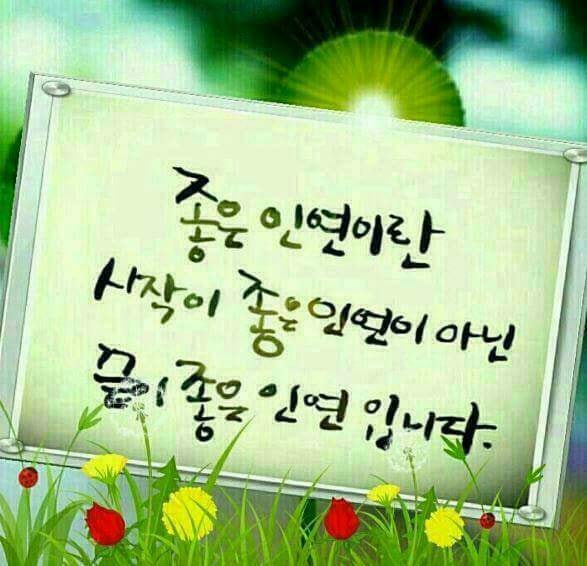 좋은 인연이란
시작이 좋은 인연이 아닌
끝이 좋은 인연 입니다.